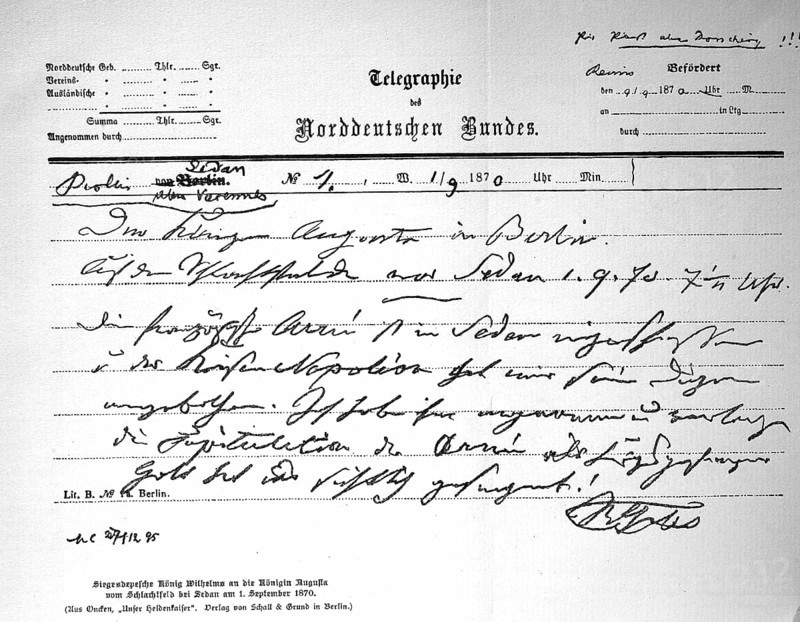 !!!
Norddeutsche Geb. Thlr. Sgr.
Vereins- " "
Ausländische " "
Summa Thlr. Sgr.
Angenommen durch
Telegraphie
des
Norddeutschen Bundes.
Befördert
den 9/9 1870 Uhr M.
an in Ltg
durch
Berlin von Berlin. Sedan
über Varennes
№ 1. W. 1/9 1870 Uhr Min.
Der Königin Augusta in Berlin.
Auf dem Schlachtfelde vor Sedan 1. 9. 70. 7½ Uhr.
Die französische Armée ist in Sedan eingeschlossen
u der Kaiser Napoléon hat mir seinen Degen
angebothen. Ich habe ihn angenommen u verlange
die Capitulation der Armée als Kriegsgefangene
Gott hat uns sichtlich gesegnet!
Lit. B. № Berlin.
95
Siegesdepesche König Wilhelms an die Königin Augusta
vom Schlachtfeld bei Sedan am 1. September 1870.
(Aus Oncken, „Unser Heldenkaiser“. Verlag von Schall & Grund in Berlin.)